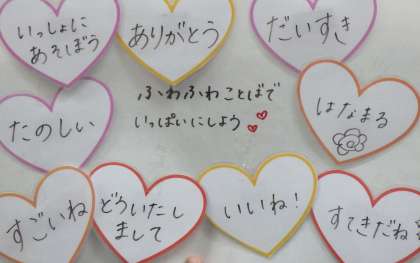 いっしょに
あそぼう
ありがとう
だいすき
ふわふわことばで
いっぱいにしよう
たのしい
はなまる
すごいね
どういたし
まして
いいね!
すてきだね